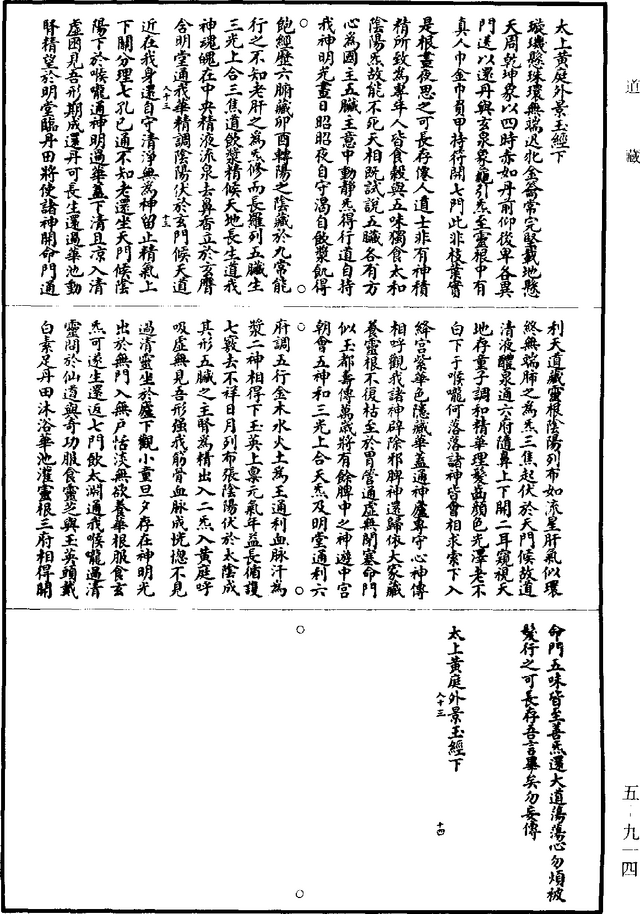 道藏
太上黃庭外景玉經下
璇璣懸珠環無端迅牝金籥常完堅載地懸
天周乾坤象以四時赤如丹前仰後卑各異
門送以還丹與玄泉象龜引炁至靈根中有
真人巾金巾負甲持符開七門此非枝葉實
是根晝夜思之可長存仙人道士非有神積
精所致為專年人皆食穀與五味獨食太和
陰陽炁故能不死天相既試說五臟各有方
心為國主五臟主意中動靜炁得行道自持
我神明光晝日昭昭夜自守渴自飲漿飢得
飽經歷六腑藏卯酉轉陽之陰藏於九常能
行之不知老肝之為炁修而長羅列五臟生
三光上合三焦道飲漿精候天地長生道我
神魂魄在中央精液流泉去鼻香立於玄膺
含明堂通我華精調陰陽伏於玄門候天道
近在我身還自守清淨無為神留止精氣上
下關分理七孔已通不知老還坐天門候陰
陽下於喉嚨通神明過華蓋下清且涼入清
虛困見吾形期成還丹可長生還過華池動
腎精望於明堂臨丹田將使諸神開命門通
利天道藏靈根陰陽列布如流星肝氣似環
終無端肺之為炁三焦起伏於天門候故道
清液醴泉通六府隨鼻上下開二耳窺視天
地存童子調和精華理髮齒顏色光澤老不
白下于喉嚨何落落諸神皆會相求索下入
絳宮紫華色隱藏華蓋通神廬專守心神傳
相呼觀我諸神辟除邪脾神還歸依大家藏
養靈根不復枯至於胃管通虛無閉塞命門
似玉都壽傳萬歲將有餘脾中之神遊中宮
朝會五神和三光上合天炁及明堂通利六
府調五行金木水火土為王通利血脈汗為
漿二神相得下玉英上稟元氣年益長循護
七竅去不祥日月列布張陰陽伏於太陰成
其形五臟之主腎為精出入二炁入黃庭呼
吸虛無見吾形強我筋骨血脈成恍惚不見
過清靈坐於廬下觀小童旦夕存在神明光
出於無門入無戶恬淡無欲養華根服食玄
炁可遂生還返七門飲太淵通我喉嚨過清
靈問於仙道與奇功服食靈芝與玉英頭戴
白素足丹田沐浴華池灌靈根三府相得開
命門五味皆至善炁還大道蕩蕩心勿煩被
髮行之可長存吾言畢矣勿妄傳
太上黃庭外景玉經下
五-九一四